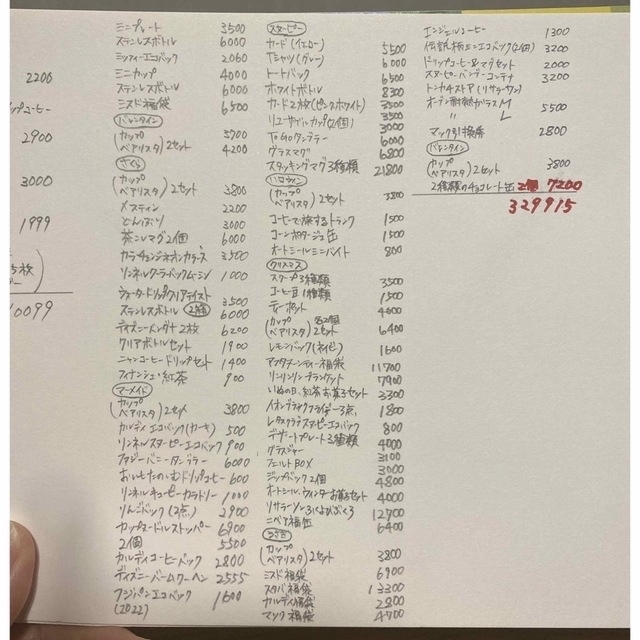 2200
プコーヒー
2900
3000
1999
5枚
10099
ミニプレート 3500
ステンレスボトル 6000
ミッフィーエコバック 2060
ミニカップ 4000
ステンレスボトル 6000
ミスド福袋 6500
バレンタイン
(カップ 3700
ベアリスタ)2セット 4200
さくら
(カップ
ベアリスタ)2セット 3800
メスティン 2200
とんぶり 3000
茶こしマグ2個 6000
カラーチェンジネオンカラーズ 3500
リンネルクーラーバックムーミン 1000
ウォータードリップクリアテイスト 3500
ステンレスボトル 2個 6000
ディズニーバンダナ2枚 6200
クリアボトルセット 1900
ニャンコーヒードリップセット 1400
フィナンシェ・紅茶 900
マーメイド
(カップ
ベアリスタ)2セット 3800
カルディエコバック(カーキ) 500
リンネルスヌーピーエコバック 900
ファジーバニータンブラー 6000
おいもたのしむドリップコーヒー 600
リンネルキューピーカトラリー 1000
りんごバック(2点) 2900
カップヌードルストッパー 6900
2個 5500
カルディコーヒーバック 2800
ディズニーバームクーヘン 2555
フジパンエコバック 1600
(2022)
スヌーピー
カード(イエロー) 5500
Tシャツ(グレー) 6000
トートバック 6500
ホワイトボトル 8300
カード2枚(ピンクホワイト) 3500
リユーザブルカップ(2個) 3500
3000
ToGoタンブラー 6000
グラスマグ 6800
スタッキングマグ3種類 21800
ハロウィン
(カップ
ベアリスタ)2セット 3800
コーヒーで旅するトランク 1500
コーンポタージュ缶 1500
オートミールミニバイト 800
クリスマス
スープ3種類 3500
コーヒー豆1種類 1500
ティーポット 4000
(カップ 各2個
ベアリスタ)2セット 6400
レモンバック(ネイビー) 1600
アフタヌーンティー福袋 11700
リンリンリンブランケット 17900
いぬの日、紅茶お菓子セット 3300
イオンブラックフライデー3点 1800
レタスクラブスヌーピーエコバック 800
デザートプレート3種類 4000
グラスジャー 3100
フェルトBOX 3000
ジップバック2個 4800
オートミール、ウィンターお菓子セット 4000
リサラーソンふくよかぶくろ 12700
ニベア福缶 6400
うさぎ
(カップ
ベアリスタ)2セット 3800
ミスド福袋 6900
スタバ福袋 13300
カルディ福袋 2800
マック福袋 4700
エンジェルコーヒー 1300
伝統柄ミニエコバック(2個) 3200
ドリップコーヒー&マグセット 2000
スヌーピーバンダーコンテナ 3200
トンカチストア(リサラーソン)
オーブン耐熱ガラスM 5500
〃 L
マック引換券 2800
バレンタイン
(カップ 3800
ベアリスタ)2セット
2種類のチョコレート缶 2個 7200
329915